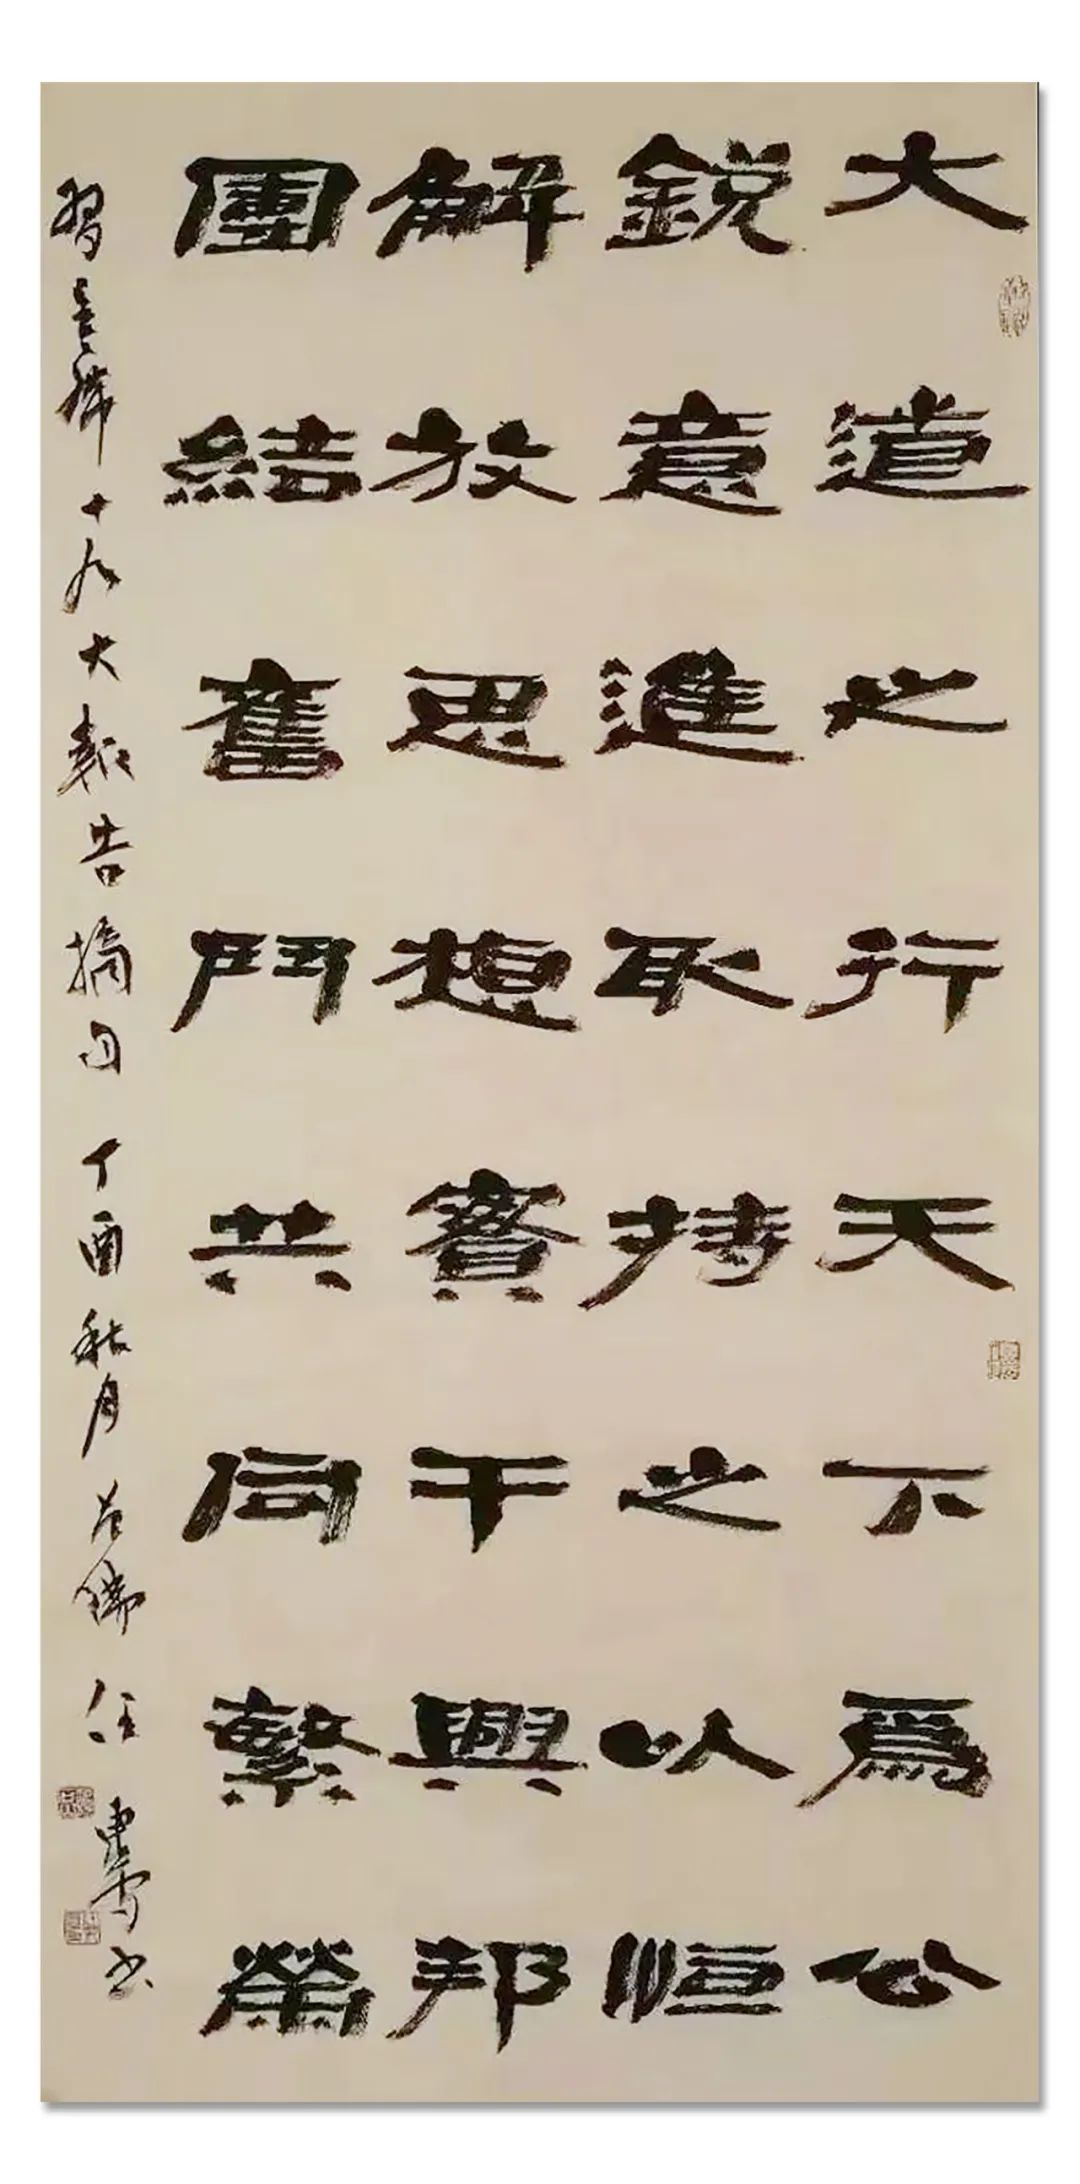 大道之行天下爲公
鋭意進取持之以恒
解放思想實干興邦
團結奮鬥共同繁榮
習十九大報告摘句 丁酉秋月 任 书